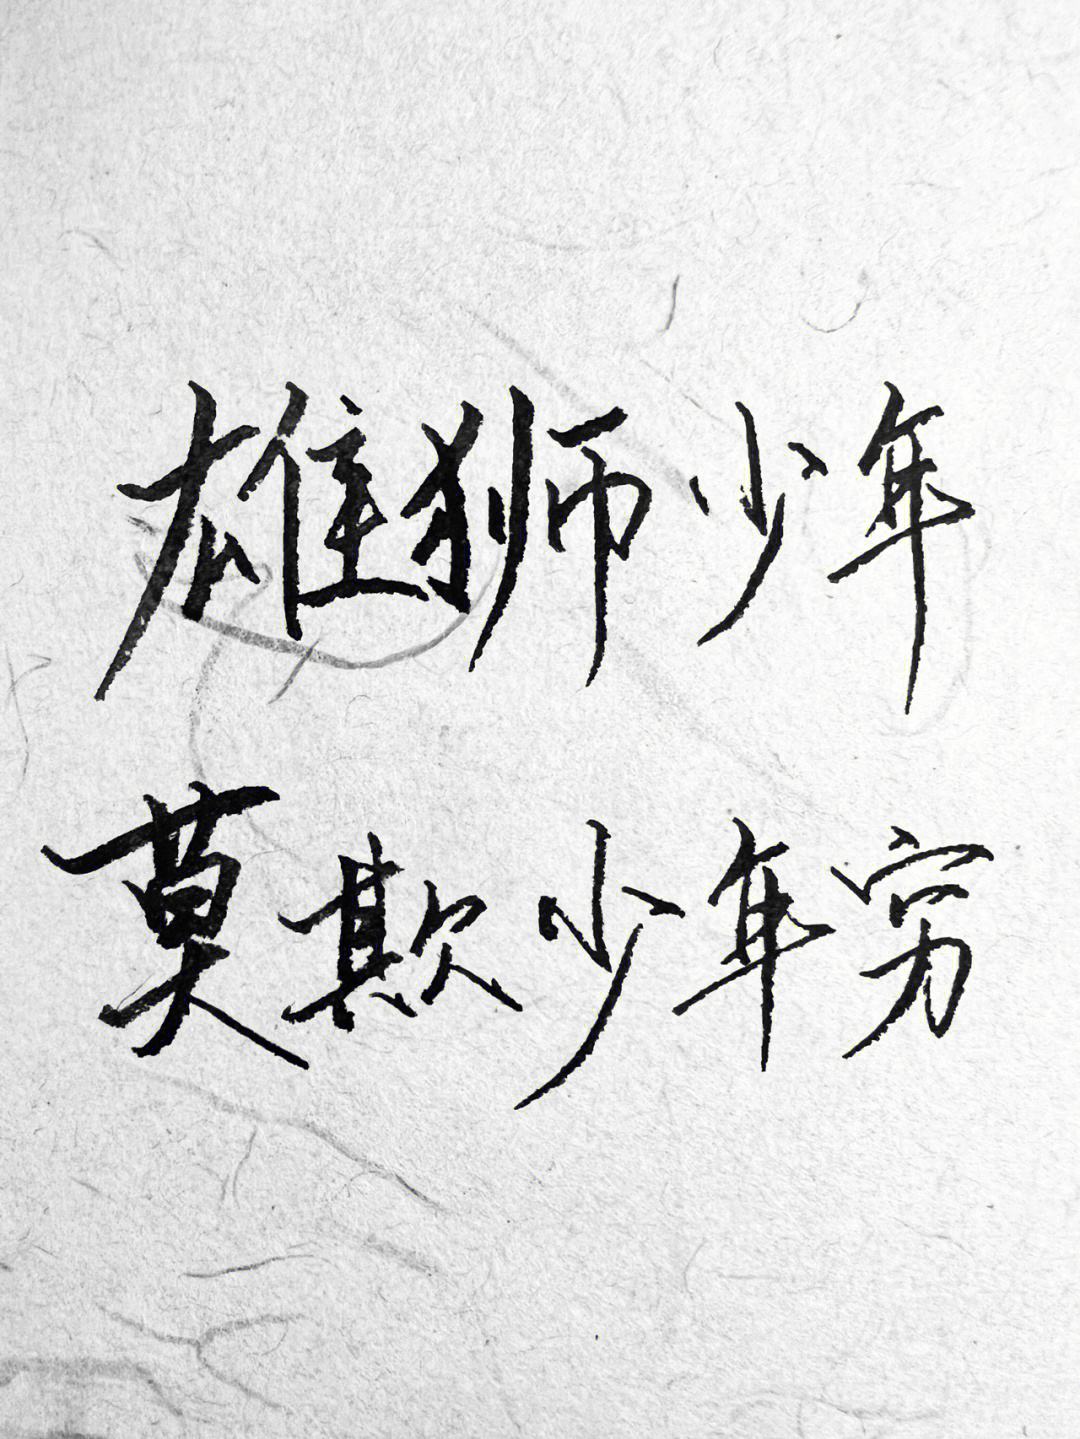 雄狮少年
莫欺少年穷